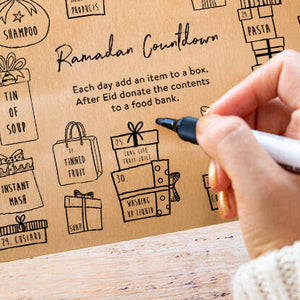 PRODUCTS
SHAMPOO
Ramadan Countdown
PASTA
Each day add an item to a box.
After Eid donate the contents
to a food bank.
TIN
OF
SOUP
TINNED
FRUIT
25
LONG LIFE
FRUIT JUICE
INSTANT
MASH
30
WASHING
UP LIQUID
SOAP
29. CUSTARD